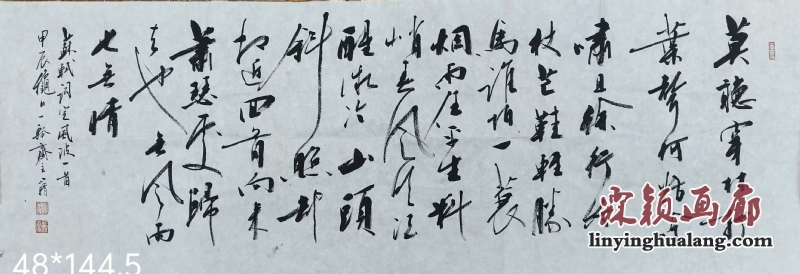 莫聽穿林打
葉聲何妨吟
嘯且徐行竹
杖芒鞋輕勝
馬誰怕一蓑
烟雨任平生料
峭春風吹酒
醒微冷山頭
斜照却
相迎回首向來
蕭瑟處歸
去也無風雨
也無情
蘇軾詞定風波一首
甲辰
霖颖画廊
linyinghualang.com
48*144.5